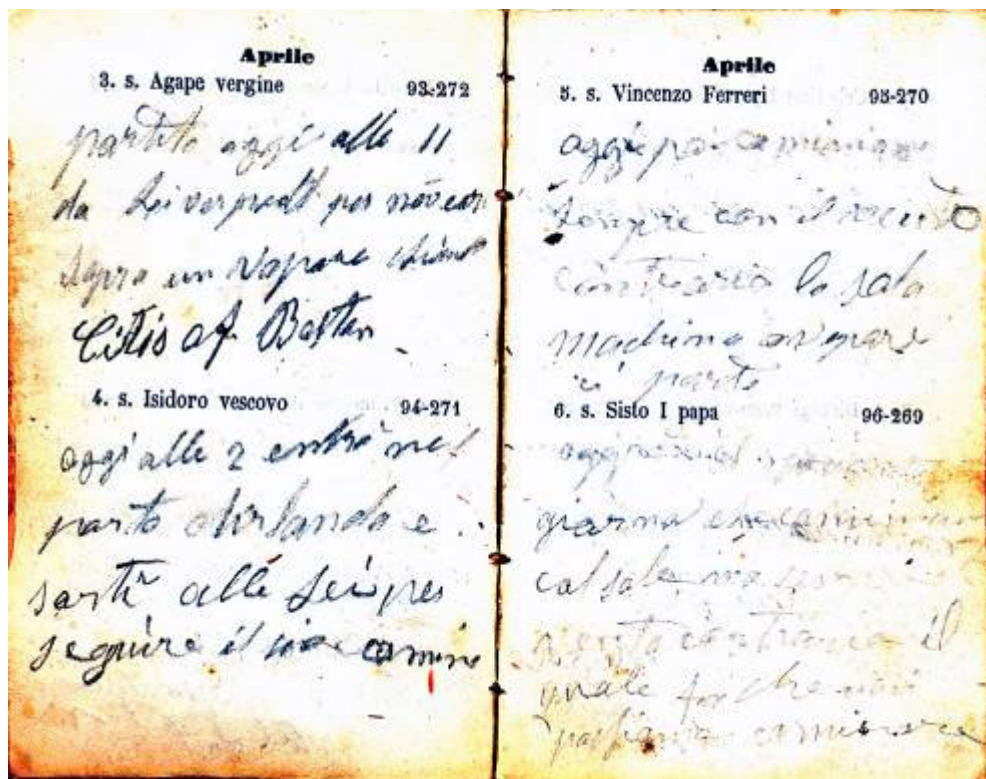 Aprile
3. s. Agape vergine 93-272
partito oggi alle 11
da per
sopra un vapore
Citis of Baston
4. s. Isidoro vescovo 94-271
oggi alle 2 entrò nel
porto dirlanda e
sortì alle sei per
seguire il suo camino
Aprile
5. s. Vincenzo Ferreri 95-270
oggi poi caminiamo
sempre con il vento
contrario la sola
machina
parte
6. s. Sisto I papa 96-269
oggi
giorno che
col sole ma
vento contrario il
quale fa che non
possiamo caminare